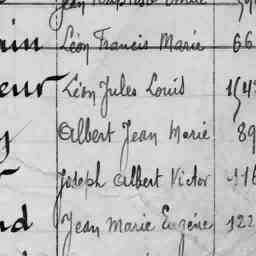 Jean Baptiste
in Léon Francis Marie 66
eur Léon Jules Louis
y Albert Jean Marie 89
Joseph Albert Victor 116
nd Jean Marie Eugène 122